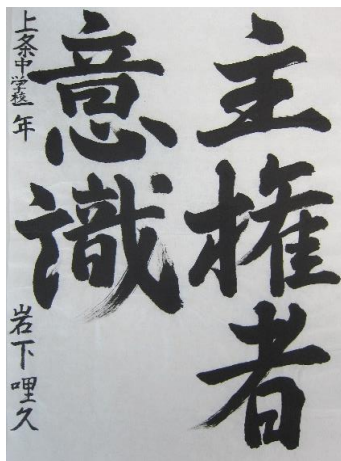 主権者
意識
上条中学校一年
岩下哩久